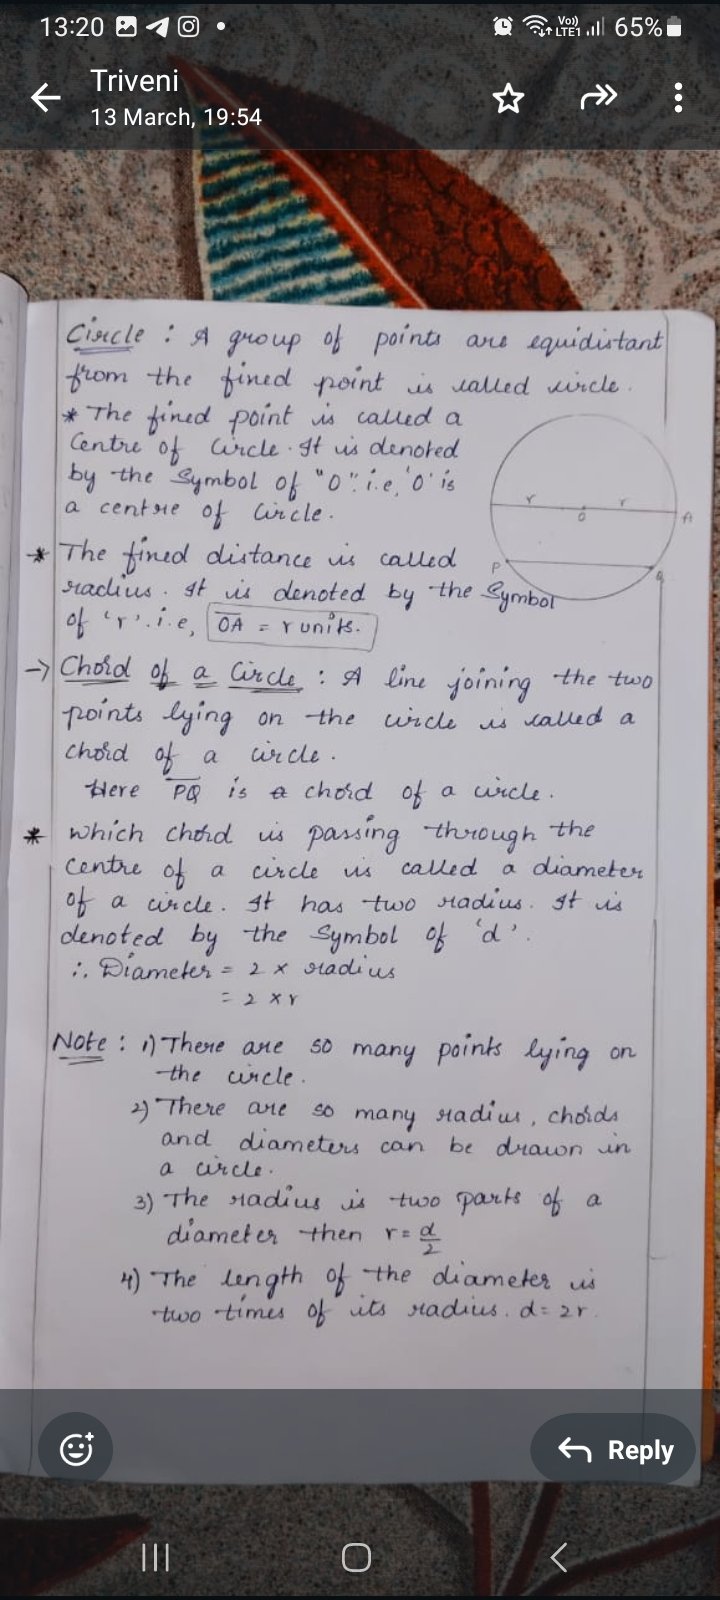 13:20
Vo))
LTE1
65%
Triveni
13 March, 19:54
Circle : A group of points are equidistant
from the fined point is called circle.
* The fined point is called a
Centre of Circle. It is denoted
by the Symbol of "O". i.e, 'O' is
a centre of Circle.
r r
O
A
P
Q
* The fined distance is called
radius. It is denoted by the Symbol
of 'r'. i.e, OA = r units.
→ Chord of a Circle : A line joining the two
points lying on the circle is called a
chord of a circle.
Here PQ is a chord of a circle.
* which chord is passing through the
centre of a circle is called a diameter
of a circle. It has two radius. It is
denoted by the Symbol of 'd'.
∴ Diameter = 2 x radius
= 2 x r
Note : 1) There are so many points lying on
the circle.
2) There are so many radius, chords
and diameters can be drawn in
a circle.
3) The radius is two parts of a
diameter then r = d/2
4) The length of the diameter is
two times of its radius. d = 2r.
Reply